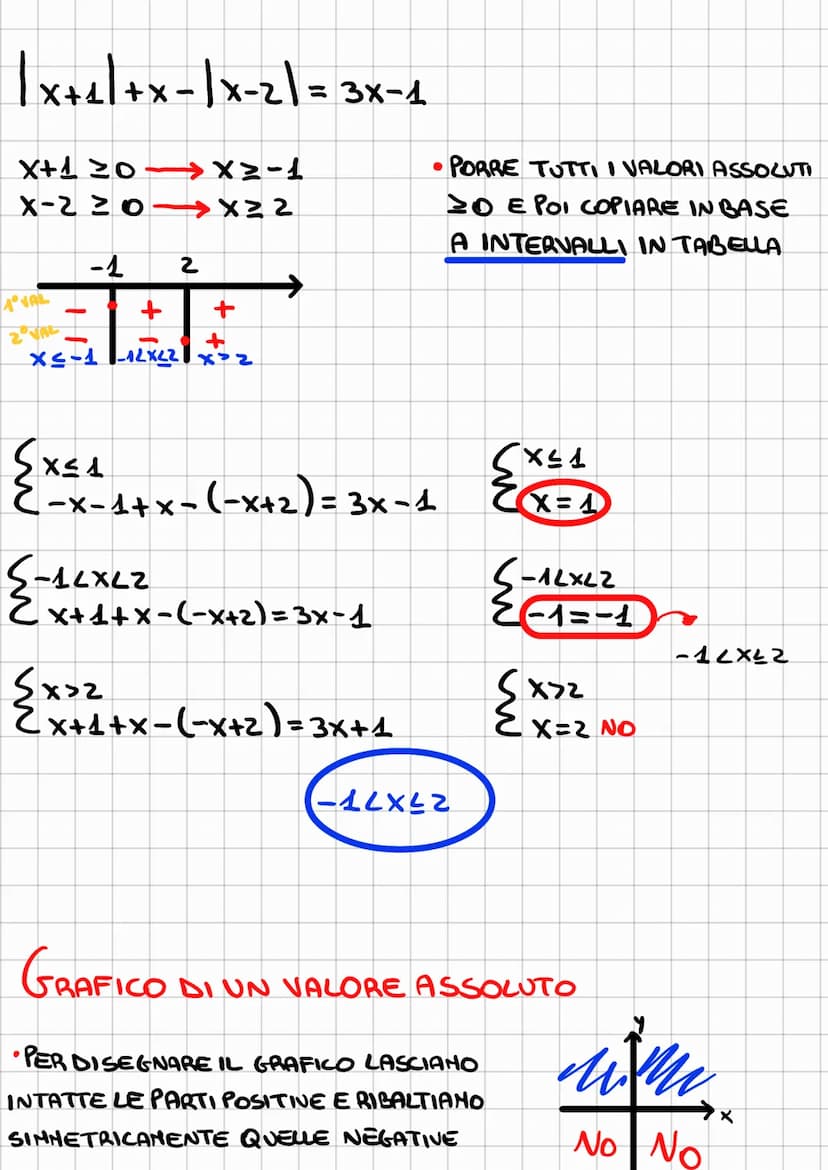 |x+1|+x-|x-2|= 3x-1
x+1 ≥0 → x≥-1
x-2 ≥ 0 → x≥ 2
• PORRE TUTTI I VALORI ASSOLUTI
≥0 E POI COPIARE IN BASE
A INTERVALLI IN TABELLA
-1 2
1° VAL - + +
2° VAL - - +
x≤-1 -1<x≤2 x>2
{x≤1
-x-1+x-(-x+2)=3x-1
{x≤1
x=1
{-1<x<2
x+1+x-(-x+2)=3x-1
{-1<x<2
-1=-1 →
-1<x≤2
{x>2
x+1+x-(-x+2)=3x+1
{x>2
x=2 NO
-1<x≤2
GRAFICO DI UN VALORE ASSOLUTO
• PER DISEGNARE IL GRAFICO LASCIAMO
INTATTE LE PARTI POSITIVE E RIBALTIAMO
SIMMETRICAMENTE QUELLE NEGATIVE
y
x
NO NO